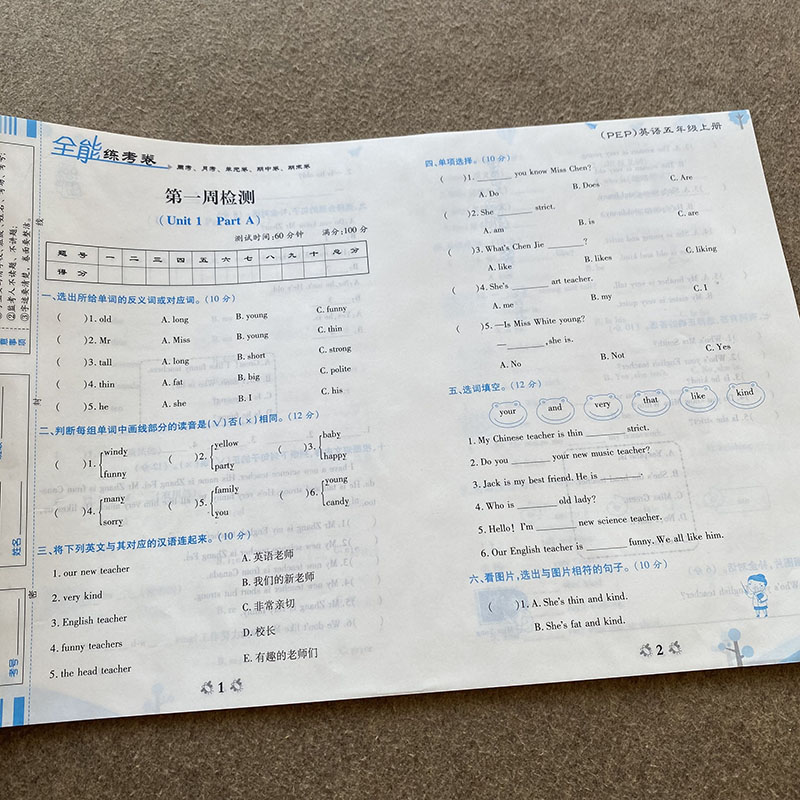 全能练考卷
周考、月考、单元卷、期中卷、期末卷
第一周检测
(Unit 1 Part A)
测试时间:60分钟 满分:100分
题号 一 二 三 四 五 六 七 八 九 十 总分
得分
一、选出所给单词的反义词或对应词。(10分)
( )1. old A. long B. young C. funny
( )2. Mr A. Miss B. young C. thin
( )3. tall A. long B. short C. strong
( )4. thin A. fat B. big C. polite
( )5. he A. she B. I C. his
二、判断每组单词中画线部分的读音是(√)否(×)相同。(12分)
( )1. windy funny
( )2. yellow party
( )3. baby happy
( )4. many sorry
( )5. family you
( )6. young candy
三、将下列英文与其对应的汉语连起来。(10分)
1. our new teacher A. 英语老师
2. very kind B. 我们的新老师
3. English teacher C. 非常亲切
4. funny teachers D. 校长
5. the head teacher E. 有趣的老师们
1
(PEP)英语五年级上册
四、单项选择。(10分)
( )1. ______ you know Miss Chen?
A. Do B. Does C. Are
( )2. She ______ strict.
A. am B. is C. are
( )3. What's Chen Jie ______?
A. like B. likes C. liking
( )4. She's ______ art teacher.
A. me B. my C. I
( )5. —Is Miss White young?
—______,she is.
A. No B. Not C. Yes
五、选词填空。(12分)
your and very that like kind
1. My Chinese teacher is thin ______ strict.
2. Do you ______ your new music teacher?
3. Jack is my best friend. He is ______.
4. Who is ______ old lady?
5. Hello! I'm ______ new science teacher.
6. Our English teacher is ______ funny. We all like him.
六、看图片,选出与图片相符的句子。(10分)
( )1. A. She's thin and kind.
B. She's fat and kind.
2
②监考人不读题、不讲题。
③字迹要清楚，卷面要整洁。
意事项
姓名
考号
线
封
密